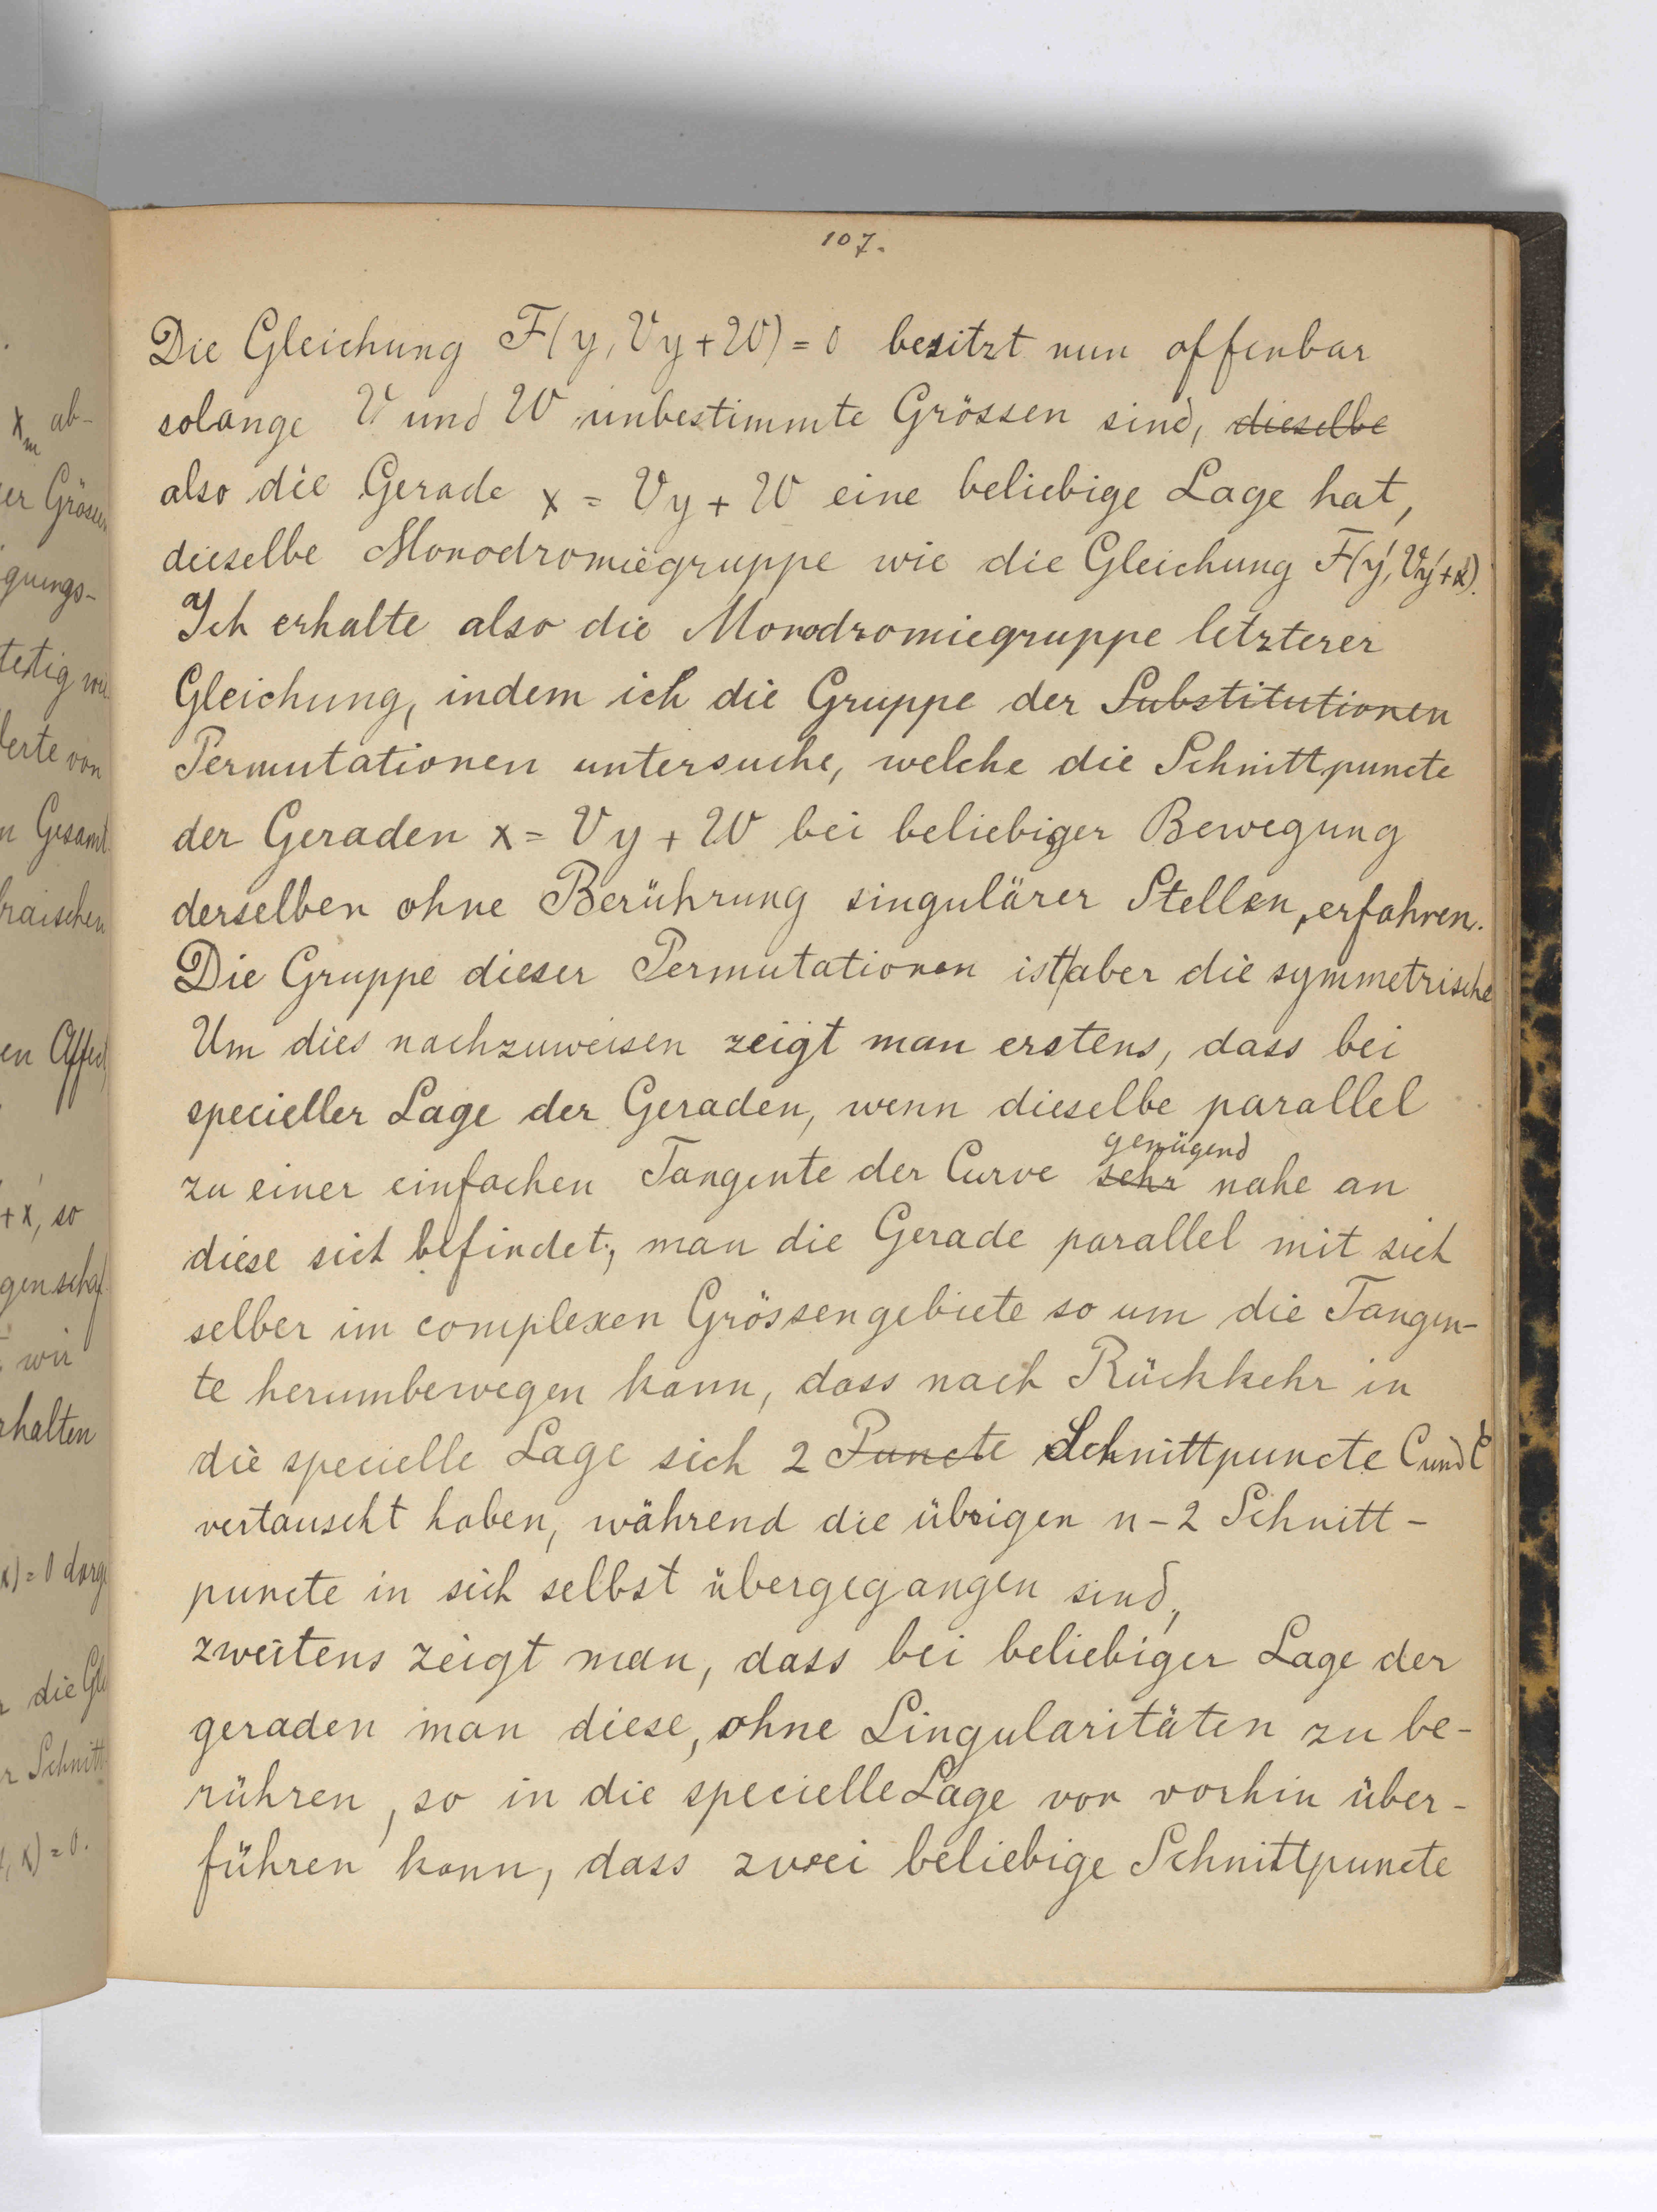 107.
Die Gleichung F(y, Vy + W) = 0 besitzt nun offenbar
solange V und W unbestimmte Grössen sind, dieselbe
also die Gerade x = Vy + W eine beliebige Lage hat,
dieselbe Monodromiegruppe wie die Gleichung F(y', Vy'+x').
Ich erhalte also die Monodromiegruppe letzterer
Gleichung, indem ich die Gruppe der Substitutionen
Permutationen untersuche, welche die Schnittpuncte
der Geraden x = Vy + W bei beliebiger Bewegung
derselben ohne Berührung singulärer Stellen, erfahren.
Die Gruppe dieser Permutationen ist aber die symmetrische
Um dies nachzuweisen zeigt man erstens, dass bei
specieller Lage der Geraden, wenn dieselbe parallel
genügend
zu einer einfachen Tangente der Curve sehr nahe an
diese sich befindet, man die Gerade parallel mit sich
selber im complexen Grössengebiete so um die Tangen-
te herumbewegen kann, dass nach Rückkehr in
die specielle Lage sich 2 Puncte Schnittpuncte C und C'
vertauscht haben, während die übrigen n-2 Schnitt-
puncte in sich selbst übergegangen sind,
zweitens zeigt man, dass bei beliebiger Lage der
geraden man diese, ohne Singularitäten zu be-
rühren, so in die specielle Lage von vorhin über-
führen kann, dass zwei beliebige Schnittpuncte
x_m ab-
er Grössen
gungs-
erte von
n Gesamt
braischen
en Affect
+ x, so
genschaf
wir
rhalten
x) = 0 darge
die Gle
r Schnitt
, x) = 0.